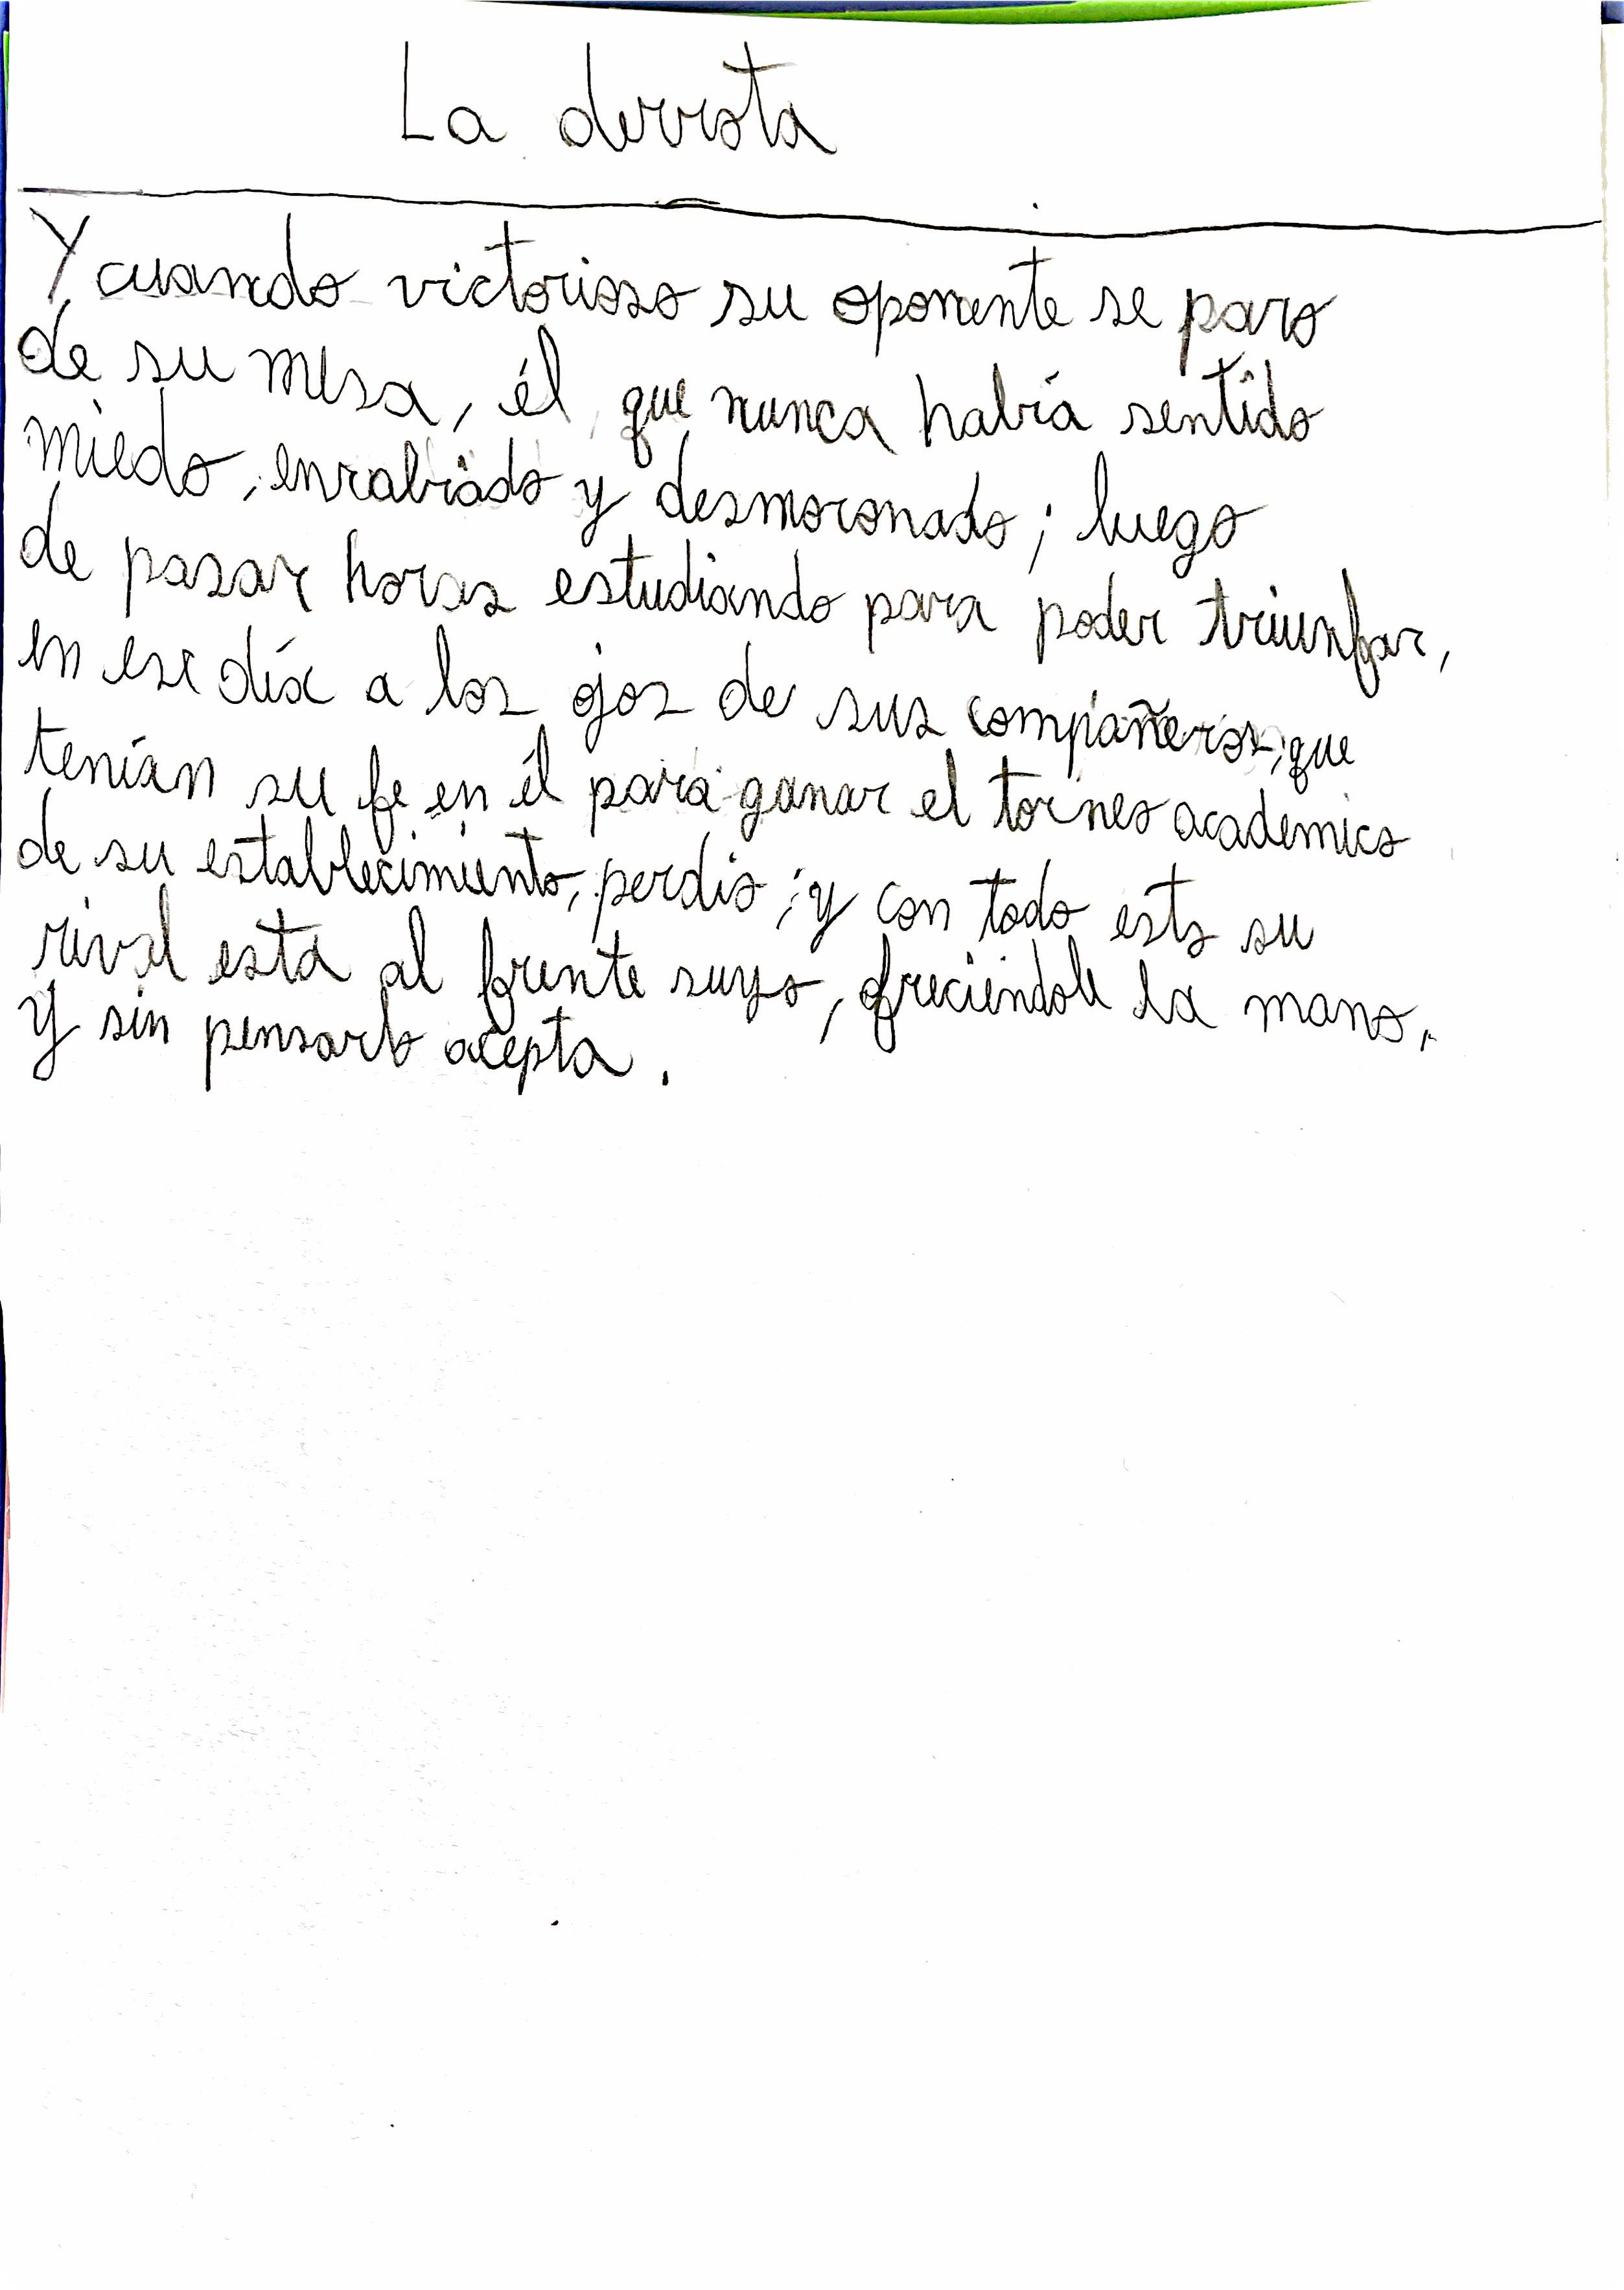 La derrota
Y cuando victorioso su oponente se paro
de su mesa, él, que nunca había sentido
miedo, enrabiado y desmoronado; luego
de pasar horas estudiando para poder triunfar,
en ese día a los ojos de sus compañeros, que
tenían su fe en él para ganar el torneo academico
de su establecimiento, perdio; y con todo esto su
rival esta al frente suyo, ofreciendole la mano,
y sin pensarlo acepta.